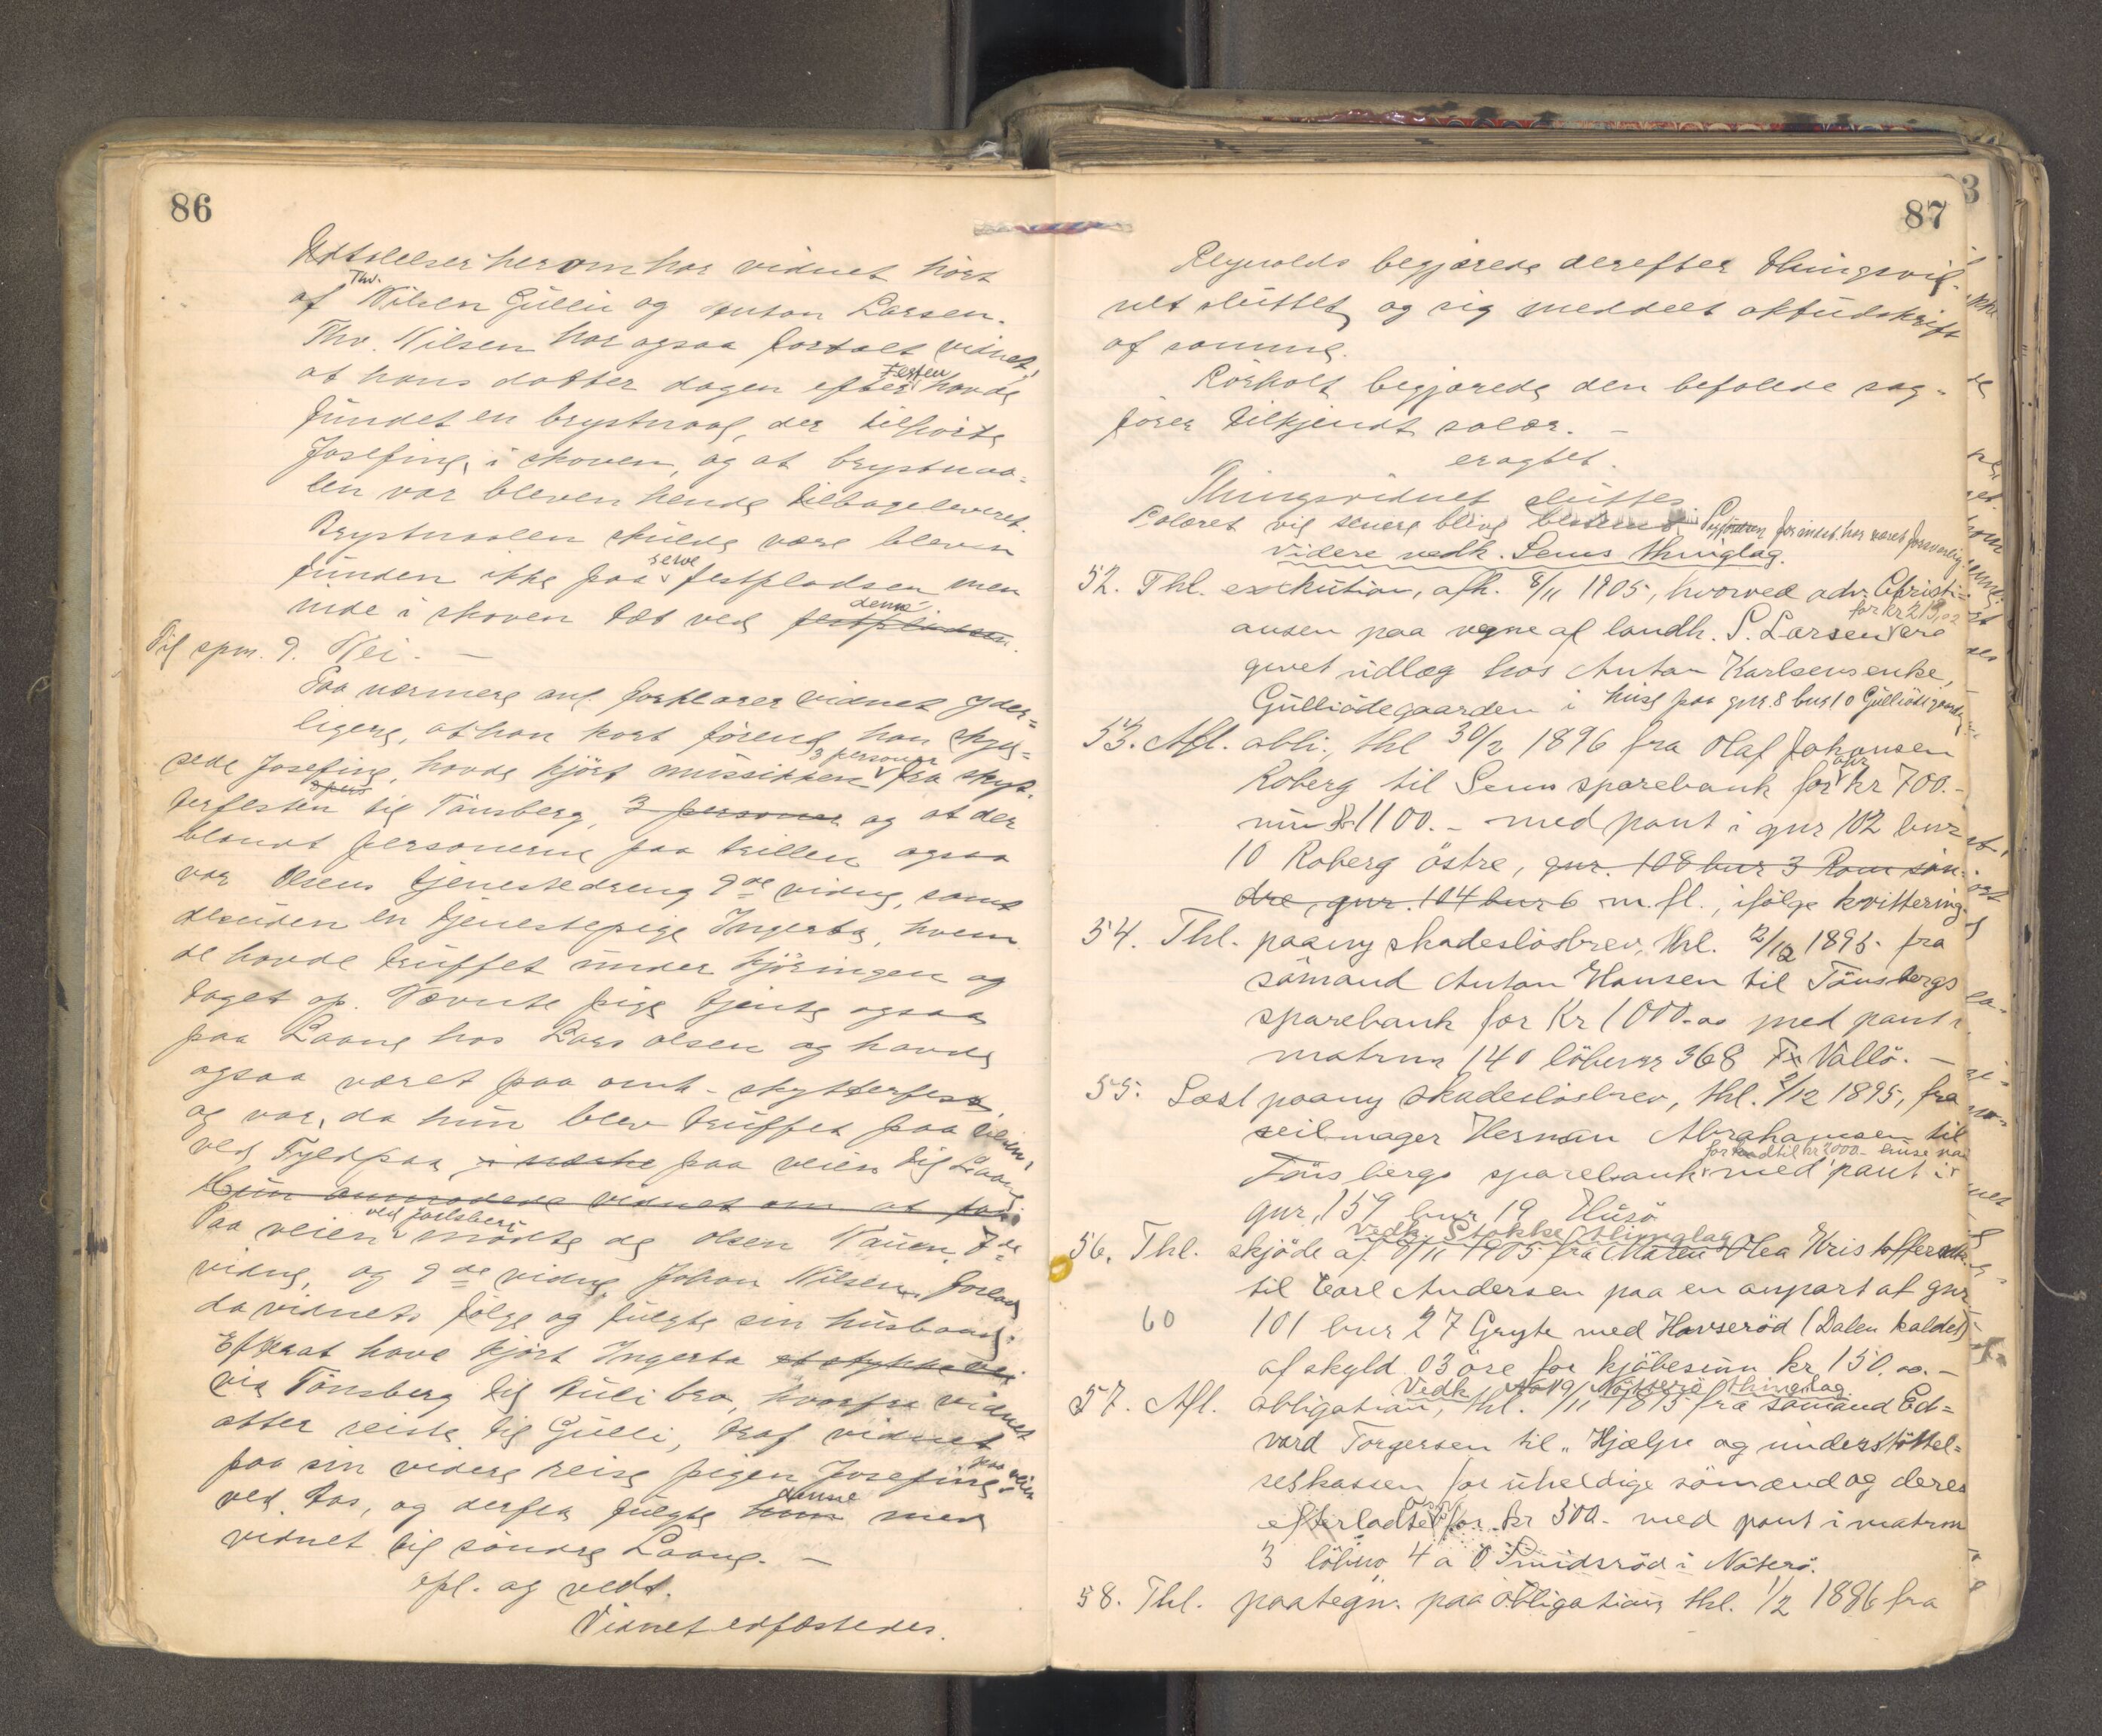 86
Udtalelser herom har vidnet hört
af Thv. Nilsen Gulli og Anton Larsen.
Thv. Nilsen har ogsaa fortalt vidnet,
at hans datter dagen efter festen havde
fundet en brystnaal, der tilhørte
Josefine, i skoven, og at brystnaa-
len var bleven hende tilbageleveret.
Brystnaalen skulde være bleven
funden ikke paa selve festpladsen men
inde i skoven tæt ved denne festpladsen.
Til spm. 9. Nei. —
Paa nærmere anl. forklarer vidnet yder-
ligere, at han kort förend han skys-
sede Josefine, havde kjört musikken 3 personer fra skyt-
terfesten til Tönsberg, 3 personer og at der
blandt personerne paa trillen ogsaa
var Olsens tjenestedreng 9de vidne, samt
desuden en tjenestepige Ingerta, hvem
de havde truffet under kjöringen og
taget op. Nævnte pige tjente ogsaa
paa Laane hos Lars Olsen og havde
ogsaa været paa amt-skytterfest
og var, da hun blev truffet paa
ved Fyldpaa, paa veien til Laane
Hun anmodede vidnet om at faa
Paa veien ved Jarlsberg mödte de Olsen Kauen 7de
vidne, og 9de vidne Johan Nilsen, forlod
da vidnets fölge og fulgte sin husbond.
Efterat have kjört Ingerta et stykke vei
via Tönsberg til bro, hvorfra vidnet
atter reiste til Gulli, traf vidnet
paa sin videre reise pigen Josefine paa veien
ved Aas, og derfra fulgte hun denne med
vidnet til söndre Laane. —
Opl. og vedt.
Vidnet edfæstedes.
87
Reynolds begjærede derefter thingsvid-
net sluttet og sig meddelt aktudskrift
af samme.
Rörholt begjærede den befalede sag-
förer tilkjendt salær. —
eragtet.
Thingsvidnet sluttes
Salæret vil senere blive bestemt. Sagförelsen forinden har været forsvarlig.
Videre vedk. Sems thinglag.
52. Thl. exekution, afh. 8/11 1905, hvorved adv. Christi-
ansen paa vegne af landh. S. Larsen for kr 213,02 ere
givet udlæg hos Anton Karlsens enke,
Gulliödegaarden i huse paa gnr. 8 bnr 10 Gulliödegaarden
53. Afl. obli., thl 30/2 1896 fra Olaf Johansen
Roberg til Sems sparebank for opr. kr 700.-
nu kr 1100.- med pant i gnr 102 bnr
10 Roberg östre, gnr. 108 bnr 3 Rom sön-
dre, gnr. 104 bnr 6 m.fl., ifölge kvittering.
54. Thl. paany skadeslösbrev, thl. 2/12 1895 fra
sömand Anton Hansen til Tönsbergs
sparebank for Kr 1000.00 med pant i
matrnr 140 löbenr 368 Fx Vallö. —
55. Læst paany skadeslösbrev, thl. 2/12 1895, fra
seilmager Herman Abrahamsen til
Tönsbergs sparebank for indtil kr 2000.- med pant i
gnr. 159 bnr 19 Husö
Vedk. Stokke thinglag
56. Thl. skjöde af 8/11 1905 fra Maren Olea Kristoffersdtr.
til Carl Andersen paa en anpart af gnr
60 101 bnr 27 Gryte med Havseröd (Dalen kaldet)
af skyld 03 öre for kjöbesum kr. 150.00.-
Vedk. Nötterö thinglag.
57. Afl. obligation, thl. 9/11 1875 fra sömand Ed-
vard Torgersen til "Hjælpe og understöttel-
seskassen for uheldige sömænd og deres
efterladte" opr. for kr 500.- med pant i matrnr
3 löbno 4 a Ö Smidsröd i Nöterö.
58. Thl. paategn. paa obligation, thl. 1/2 1886 fra